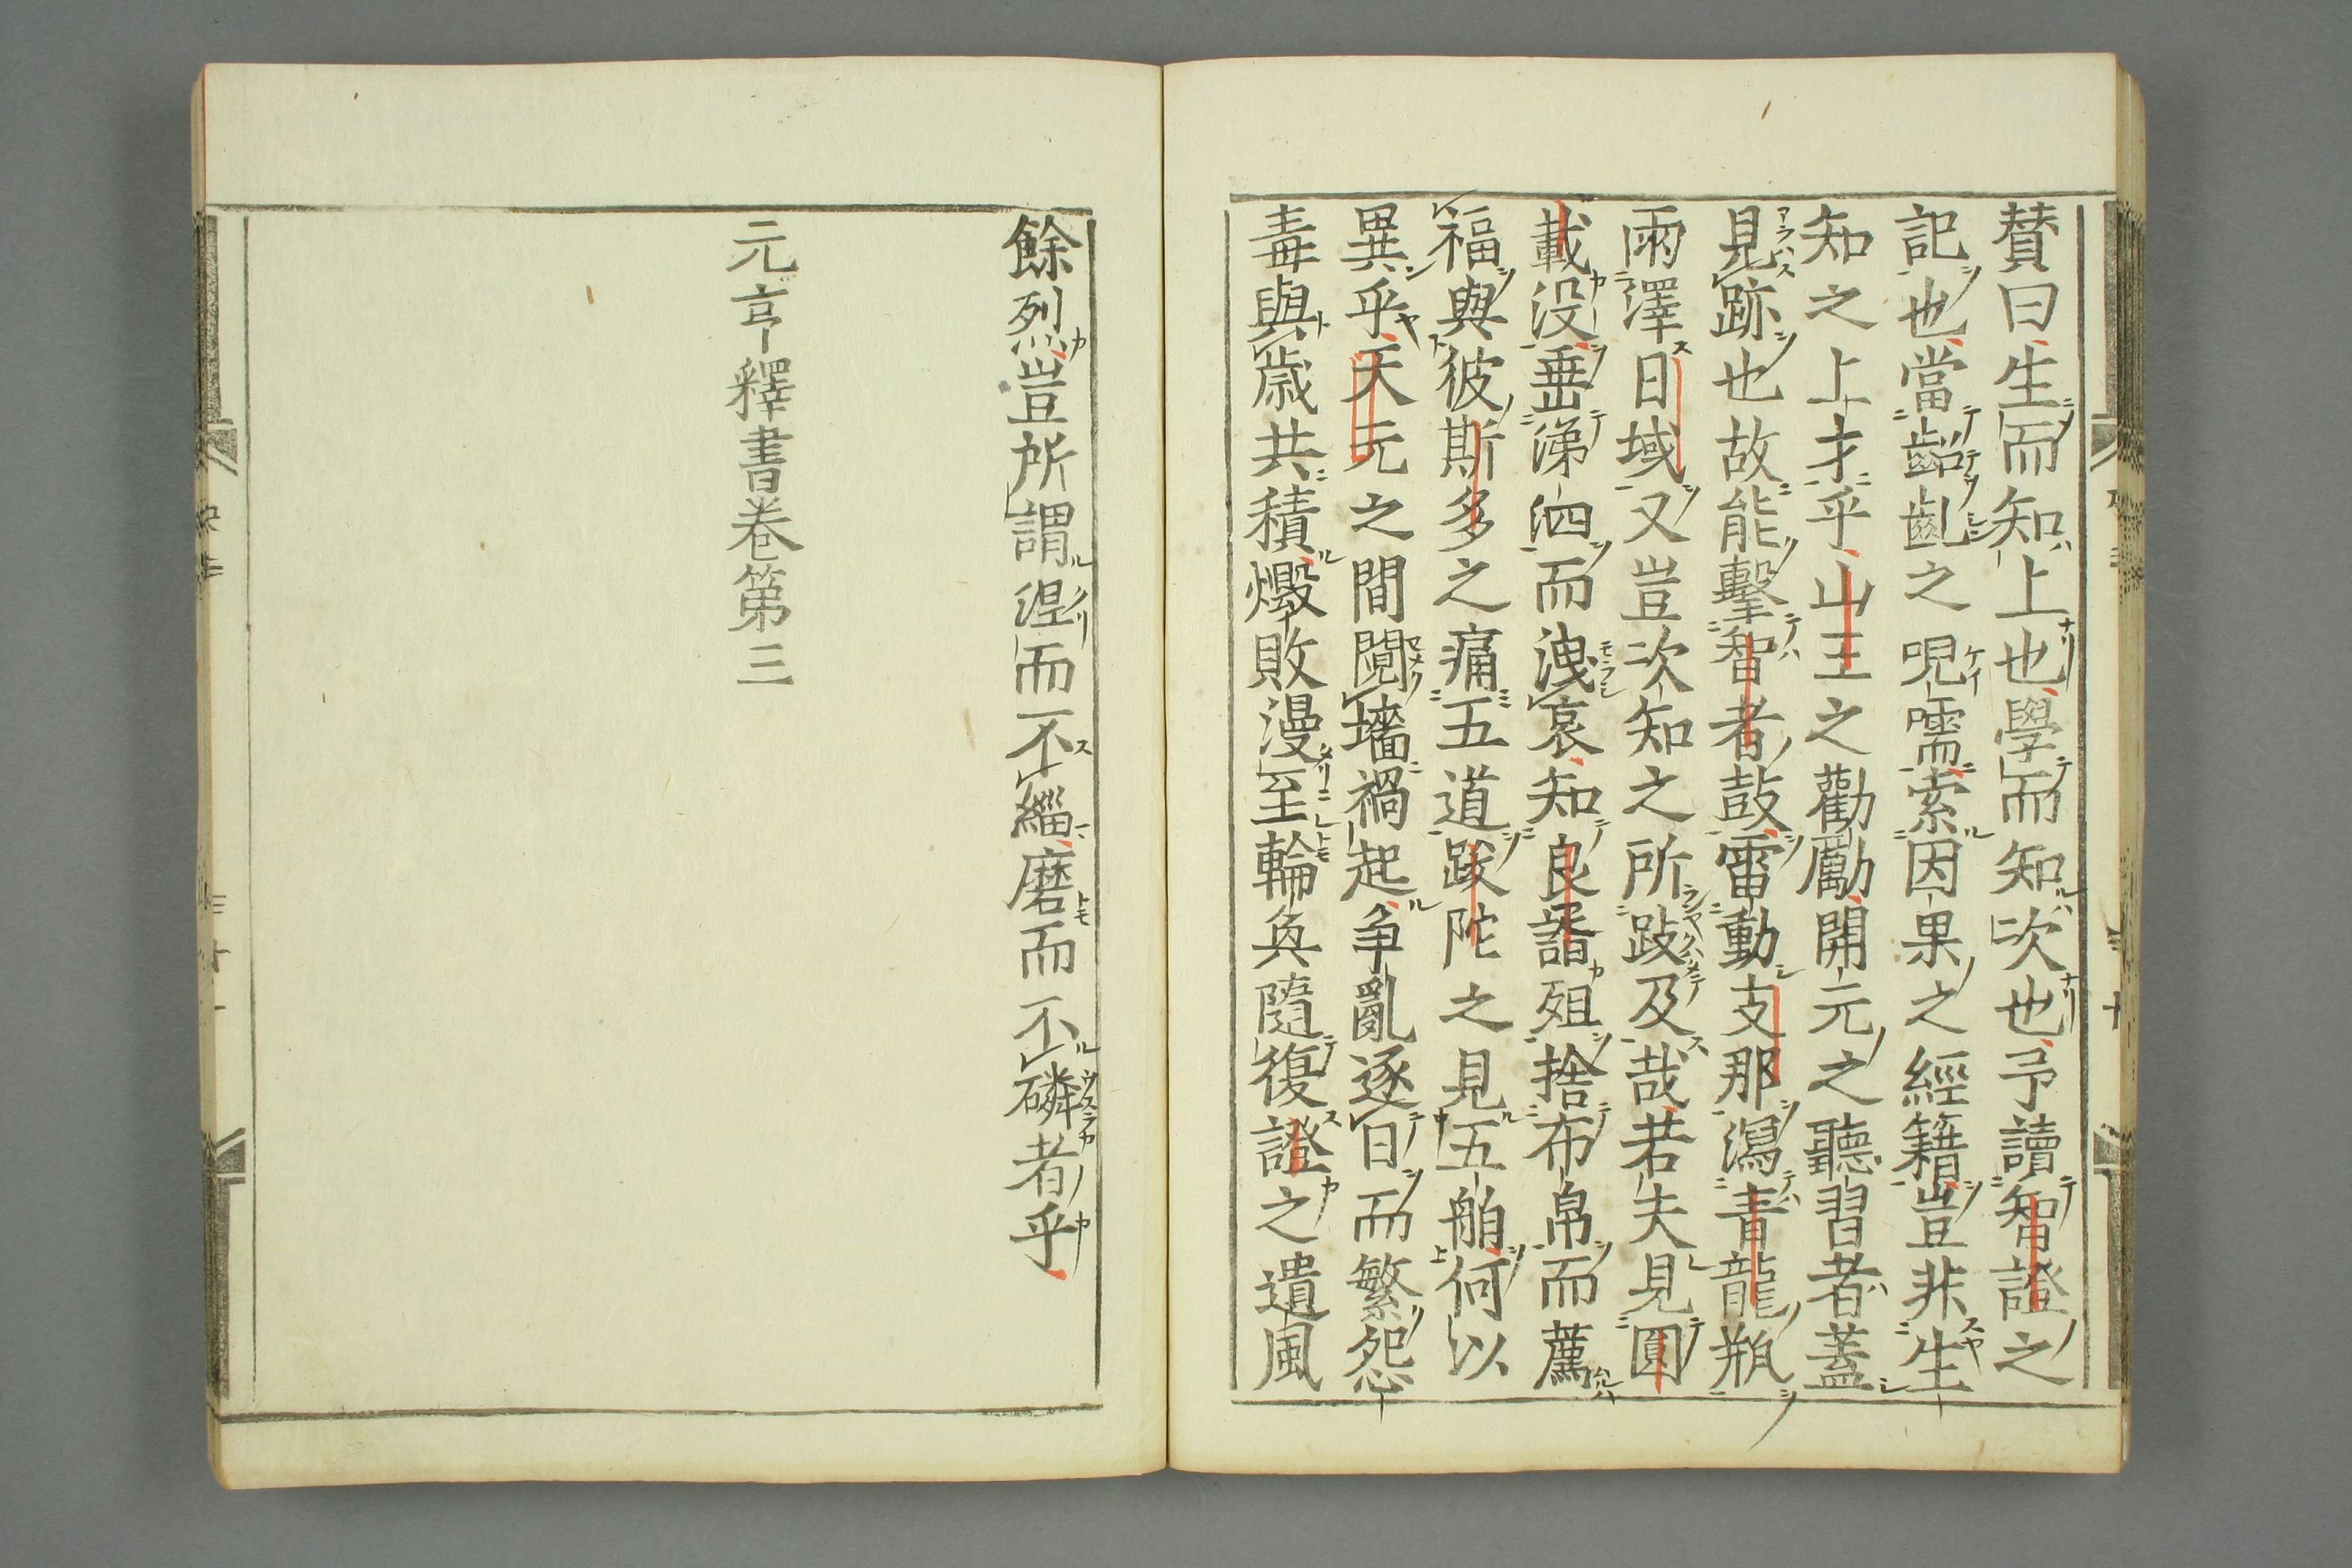 賛曰生而知上也學而知次也予讀智證之
記也當齠齔之呪嚅索因果之經籍豈非生
知之上才乎山王之勸勵開元之聽習者蓋
見跡也故能擊智者鼓雷動支那瀉青龍瓶
雨澤日域又豈次知之所跂及哉若夫見圓
載没垂涕泗而洩哀知良諝殂捨布帛而薦
福與彼斯多之痛五道跋陀之見五舶何以
異乎天元之間䦧墻禍起爭亂逐日而繁怨
毒與歳共積燬敗漫至輪奐隨復證之遺風
餘烈豈所謂涅而不緇磨而不磷者乎
元亨釋書巻第三